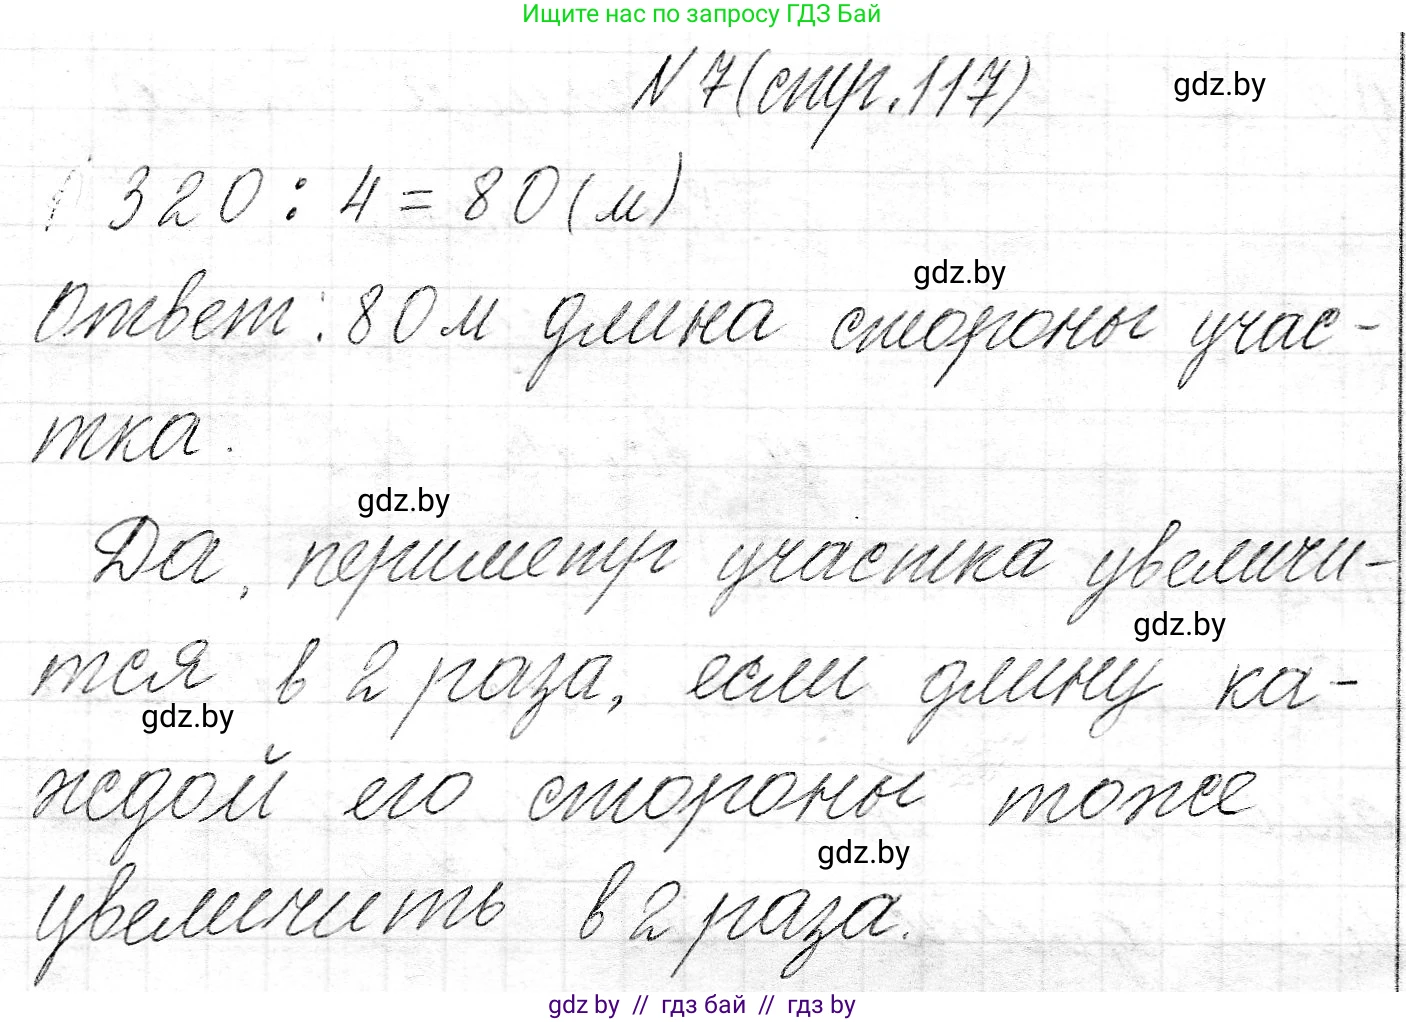 Ищите нас по запросу ГДЗ Бай
N 7 (стр. 117)
gdz.by
1) 320 : 4 = 80 (м)
gdz.by
Ответ: 80 м длина стороны учас-
тка.
gdz.by
Да, периметр участка увеличи-
gdz.by
тся в 2 раза, если длину ка-
gdz.by
ждой его стороны тоже
gdz.by
увеличить в 2 раза.
gdz by // гдз бай // гдз by